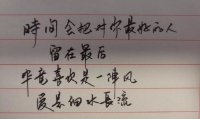 時间会把对你最好的人
留在最后
毕竟喜欢是一阵风
爱是细水長流